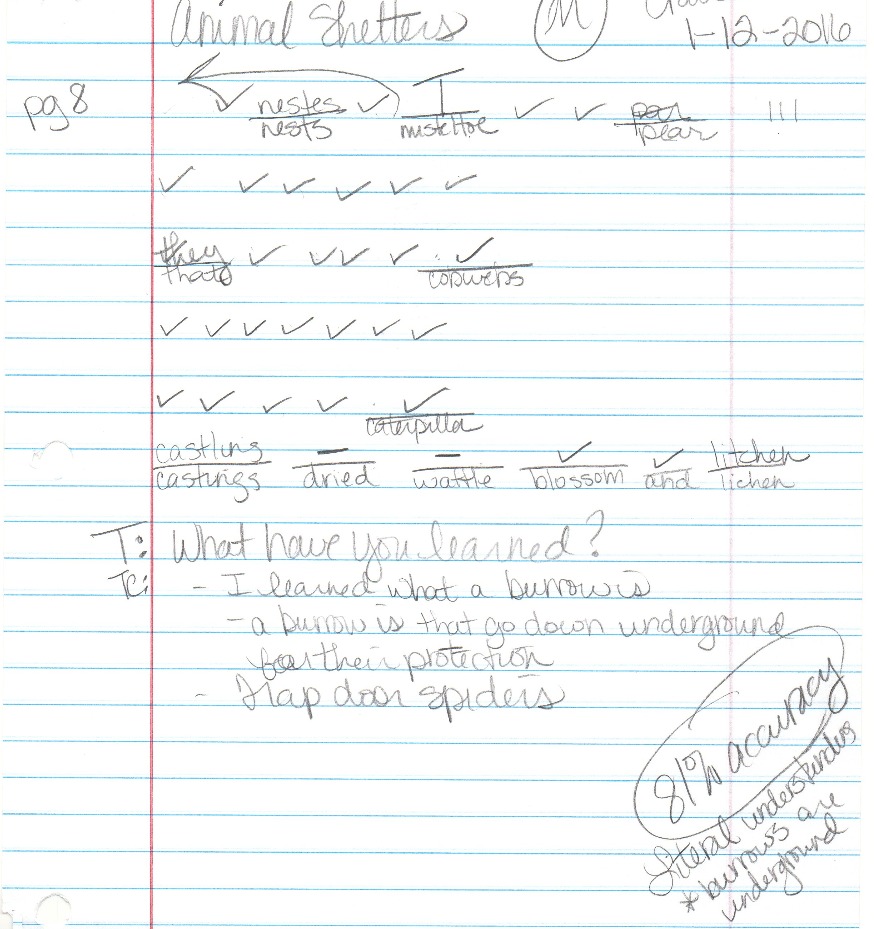 Animal Shelters M
1-12-2016
pg 8 ✓ nestes ✓ T ✓ ✓ pear |||
nests mistletoe pear
✓ ✓ ✓ ✓ ✓ ✓
they ✓ ✓✓ ✓ ✓
that cobwebs
✓ ✓ ✓ ✓ ✓ ✓ ✓
✓ ✓ ✓ ✓ ✓
caterpilla
castling — — ✓ ✓ litchen
castings dried wattle blossom and lichen
T: What have you learned?
TC: - I learned what a burrow is
- a burrow is that go down underground
for their protection
- Trap door spiders
81% accuracy
Literal understanding
* burrows are
underground